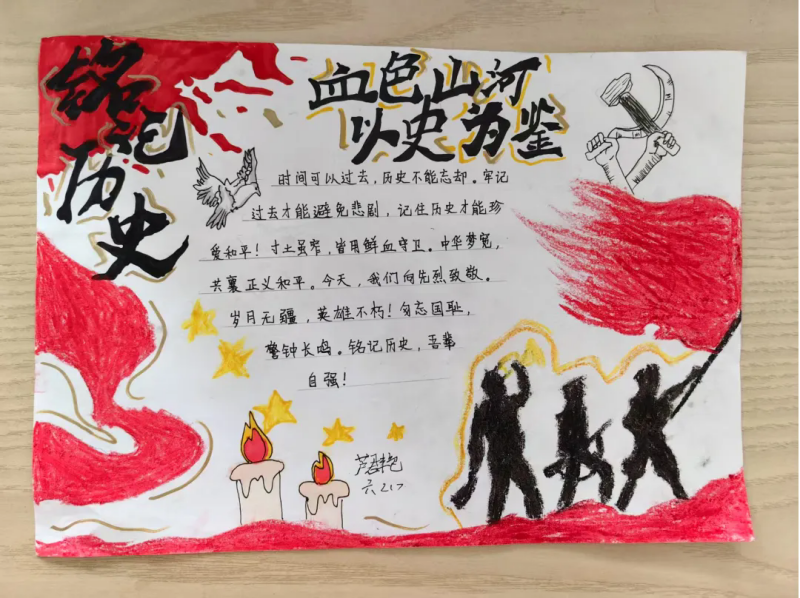 铭记历史
血色山河
以史为鉴
时间可以过去,历史不能忘却。牢记
过去才能避免悲剧,记住历史才能珍
爱和平!寸土虽窄,皆用鲜血守卫。中华梦宽,
共襄正义和平。今天,我们向先烈致敬。
岁月无疆,英雄不朽!勿忘国耻,
警钟长鸣。铭记历史,吾辈
自强!
六217